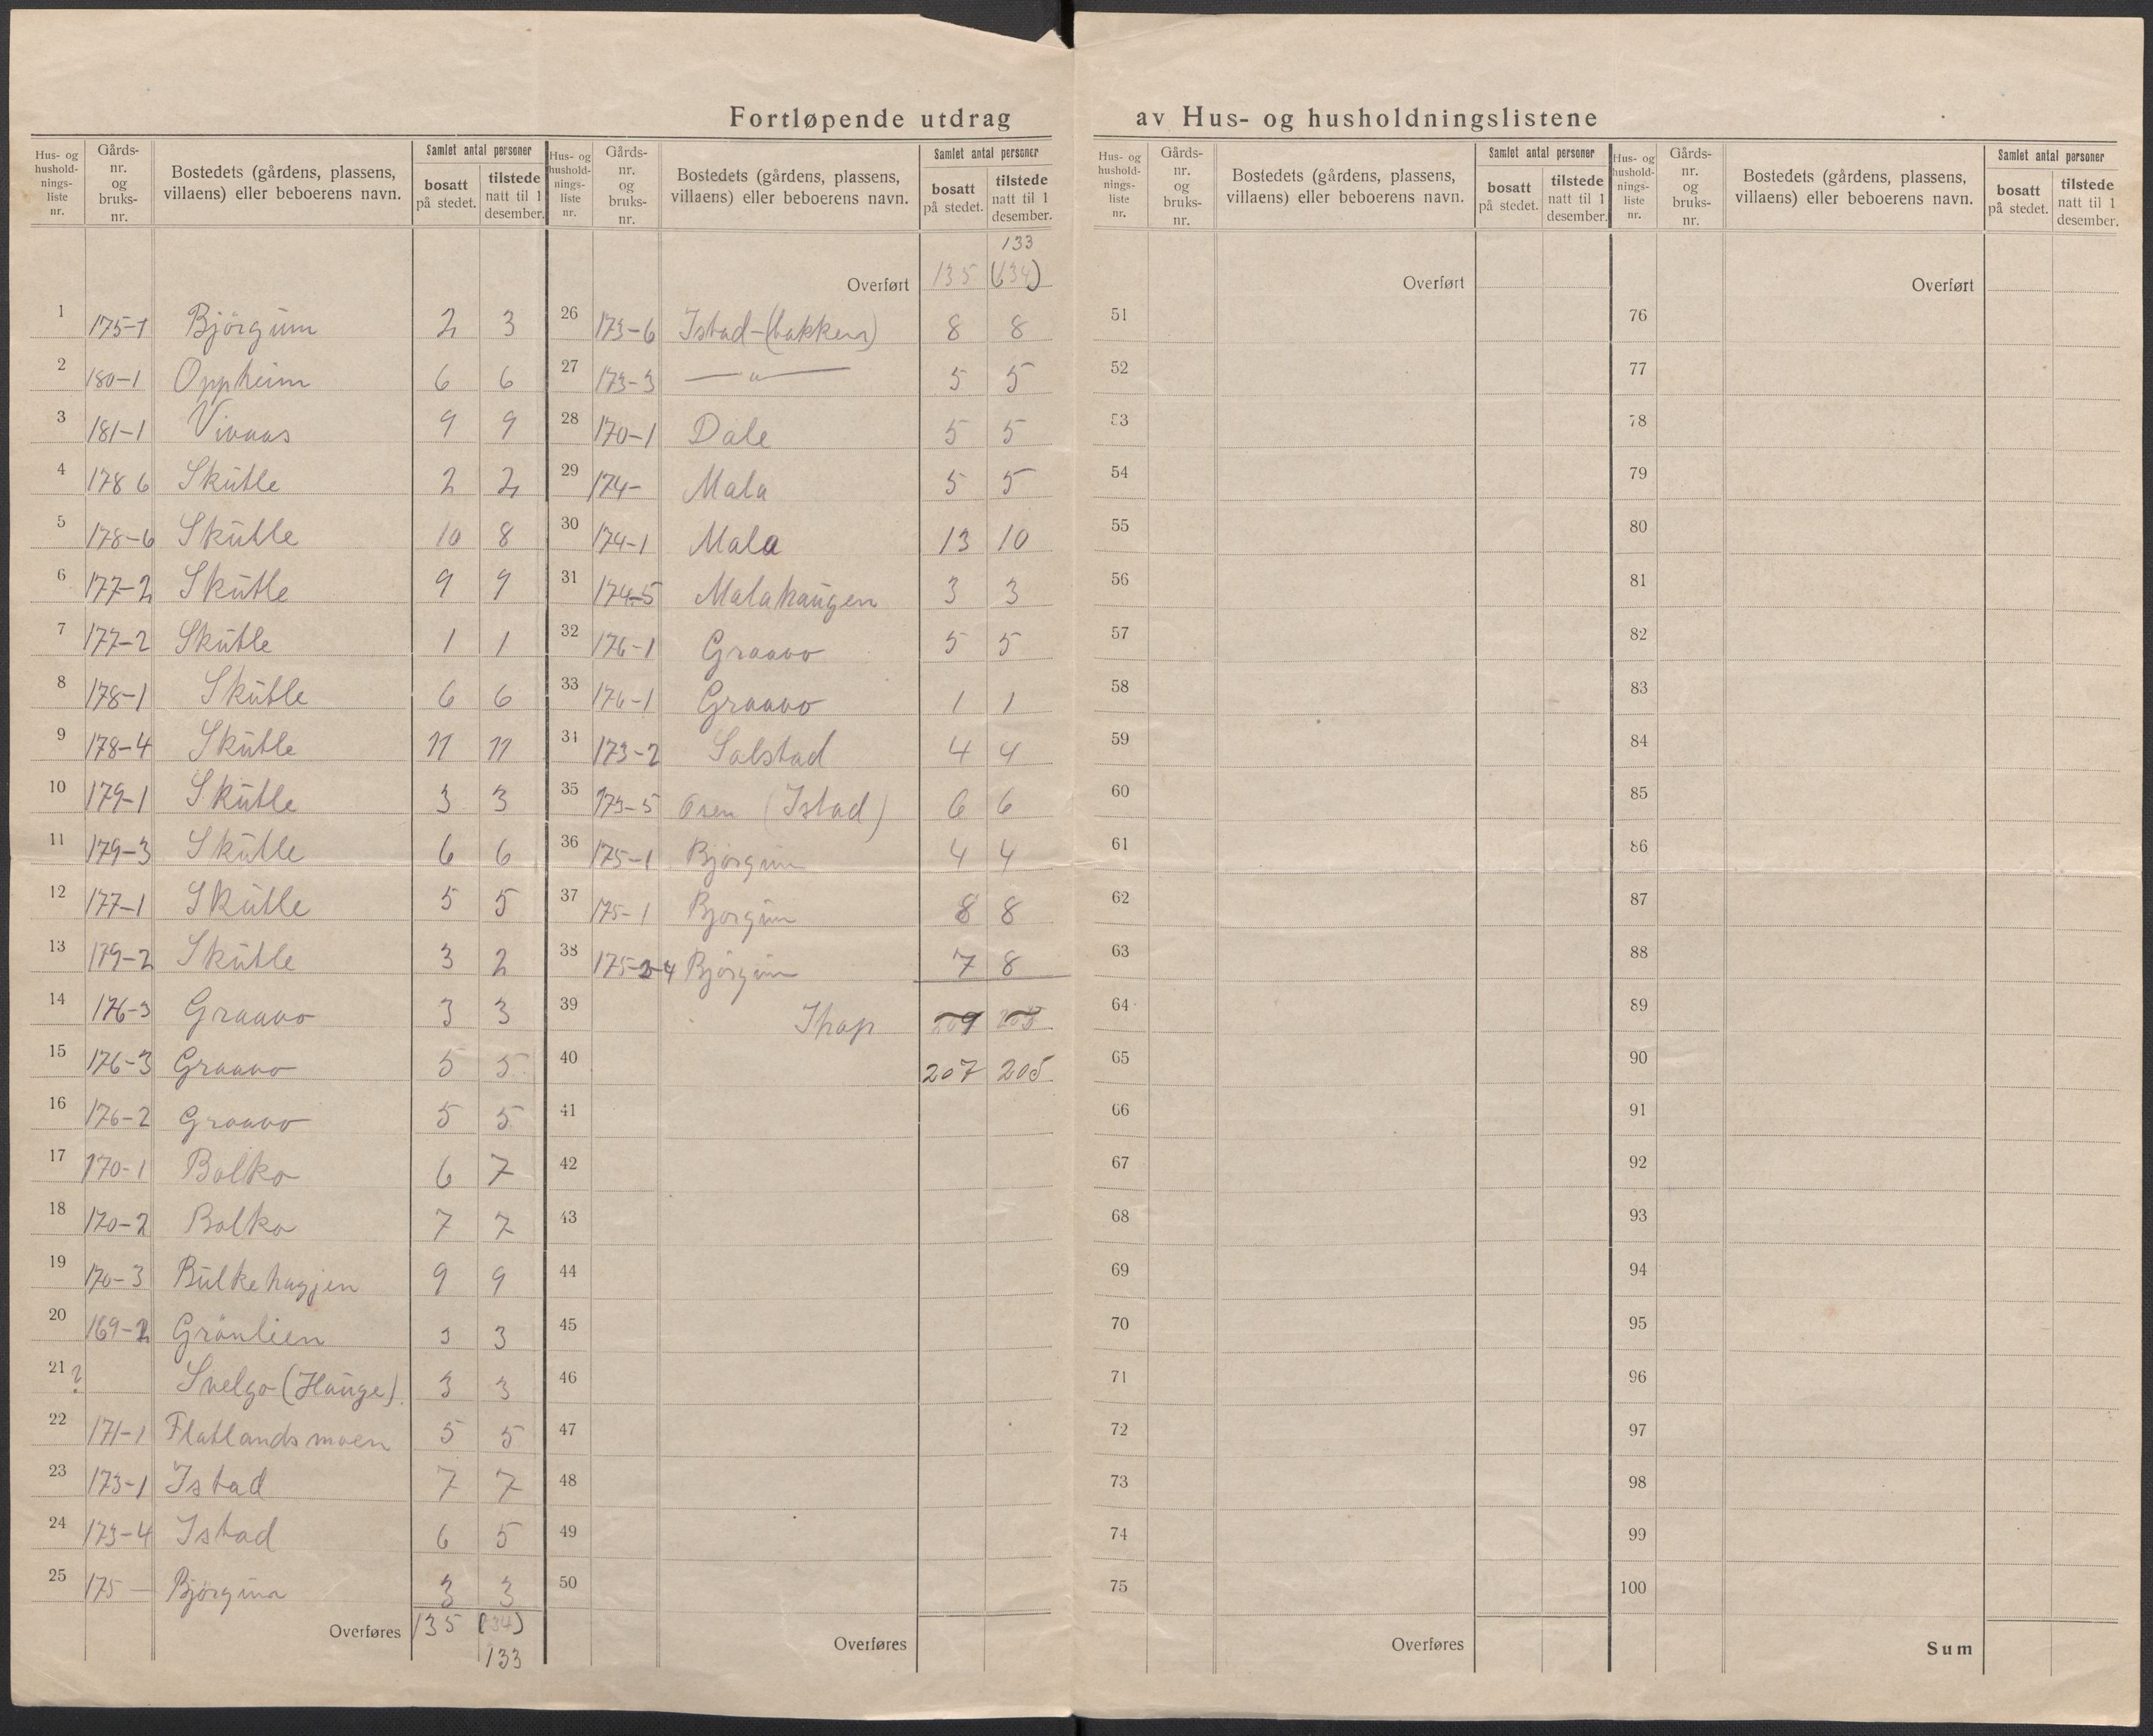 Fortløpende utdrag av Hus- og husholdningslistene
Hus- og hushold-nings-liste nr. | Gårds-nr. og bruks-nr. | Bostedets (gårdens, plassens, villaens) eller beboerens navn. | Samlet antal personer | bosatt på stedet. | tilstede natt til 1 desember.
1 175-1 Bjørgum 2 3
2 180-1 Oppheim 6 6
3 181-1 Vinaas 9 9
4 178 6 Skutle 2 2
5 178-6 Skutle 10 8
6 177-2 Skutle 9 9
7 177-2 Skutle 1 1
8 178-1 Skutle 6 6
9 178-4 Skutle 11 11
10 179-1 Skutle 3 3
11 179-3 Skutle 6 6
12 177-1 Skutle 5 5
13 179-2 Skutle 3 2
14 176-3 Graavo 3 3
15 176-3 Graavo 5 5
16 176-2 Graavo 5 5
17 170-1 Bolko 6 7
18 170-2 Bolko 7 7
19 170-3 Bulkehagjen 9 9
20 169-2 Grönlien 3 3
21 ? Svelgo (Hauge) 3 3
22 171-1 Flatlandsmoen 5 5
23 173-1 Istad 7 7
24 173-4 Istad 6 5
25 175 — Bjørgum 3 3
Overføres 135 (134)
133
Hus- og hushold-nings-liste nr. | Gårds-nr. og bruks-nr. | Bostedets (gårdens, plassens, villaens) eller beboerens navn. | Samlet antal personer | bosatt på stedet. | tilstede natt til 1 desember.
133
Overført 135 (134)
26 173-6 Istad-(bakken) 8 8
27 173-3 —"— 5 5
28 170-1 Dale 5 5
29 174- Mala 5 5
30 174-1 Mala 13 10
31 174-5 Malahaugen 3 3
32 176-1 Graavo 5 5
33 176-1 Graavo 1 1
34 173-2 Salstad 4 4
35 173-5 Osen (Istad) 6 6
36 175-1 Bjørgum 4 4
37 175-1 Bjørgum 8 8
38 175-2-4 Bjørgum 7 8
39 Ihop 209 203
40 207 205
41
42
43
44
45
46
47
48
49
50
Overføres
Hus- og hushold-nings-liste nr. | Gårds-nr. og bruks-nr. | Bostedets (gårdens, plassens, villaens) eller beboerens navn. | Samlet antal personer | bosatt på stedet. | tilstede natt til 1 desember.
Overført
51
52
53
54
55
56
57
58
59
60
61
62
63
64
65
66
67
68
69
70
71
72
73
74
75
Overføres
Hus- og hushold-nings-liste nr. | Gårds-nr. og bruks-nr. | Bostedets (gårdens, plassens, villaens) eller beboerens navn. | Samlet antal personer | bosatt på stedet. | tilstede natt til 1 desember.
Overført
76
77
78
79
80
81
82
83
84
85
86
87
88
89
90
91
92
93
94
95
96
97
98
99
100
Sum